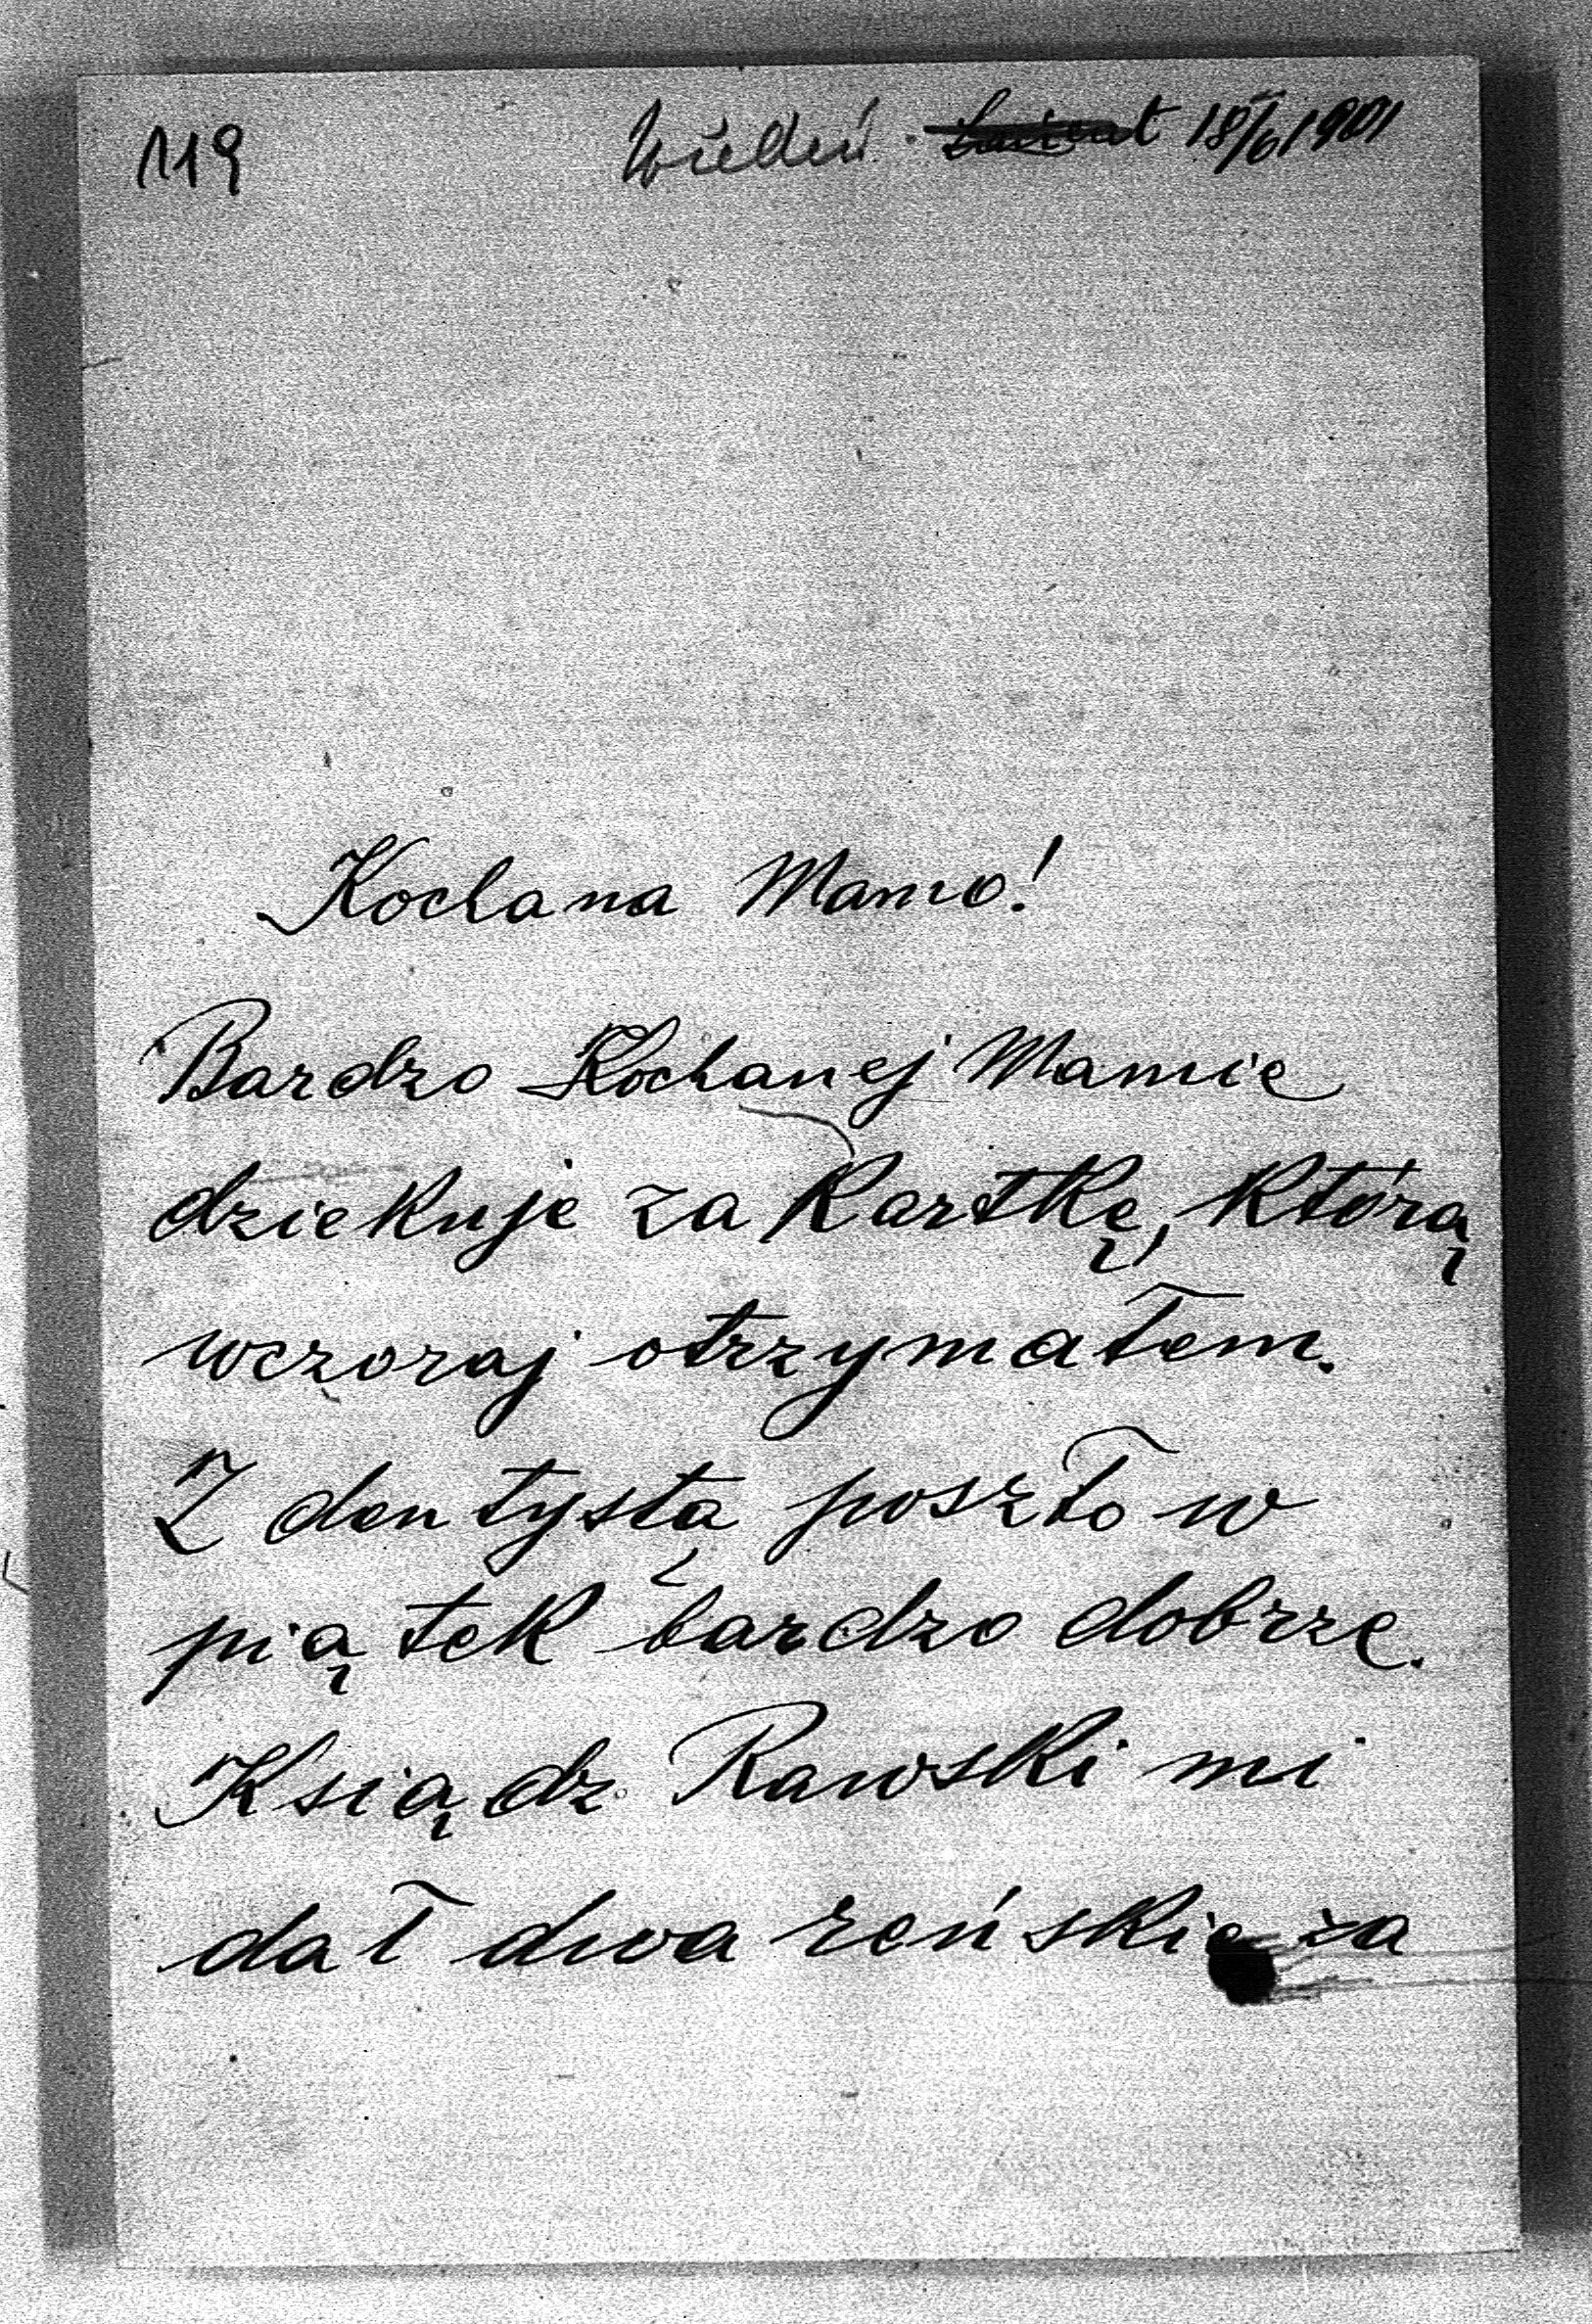 119
Wiedeń. 18/6 1901
Kochana Mamo!
Bardzo Kochanej Mamie
dziekuje za Kartkę, Którą
wczoraj otrzymałem.
Z dentystą poszło w
piątek bardzo dobrze.
Ksiądz Rawski mi
dał dwa reńskie za